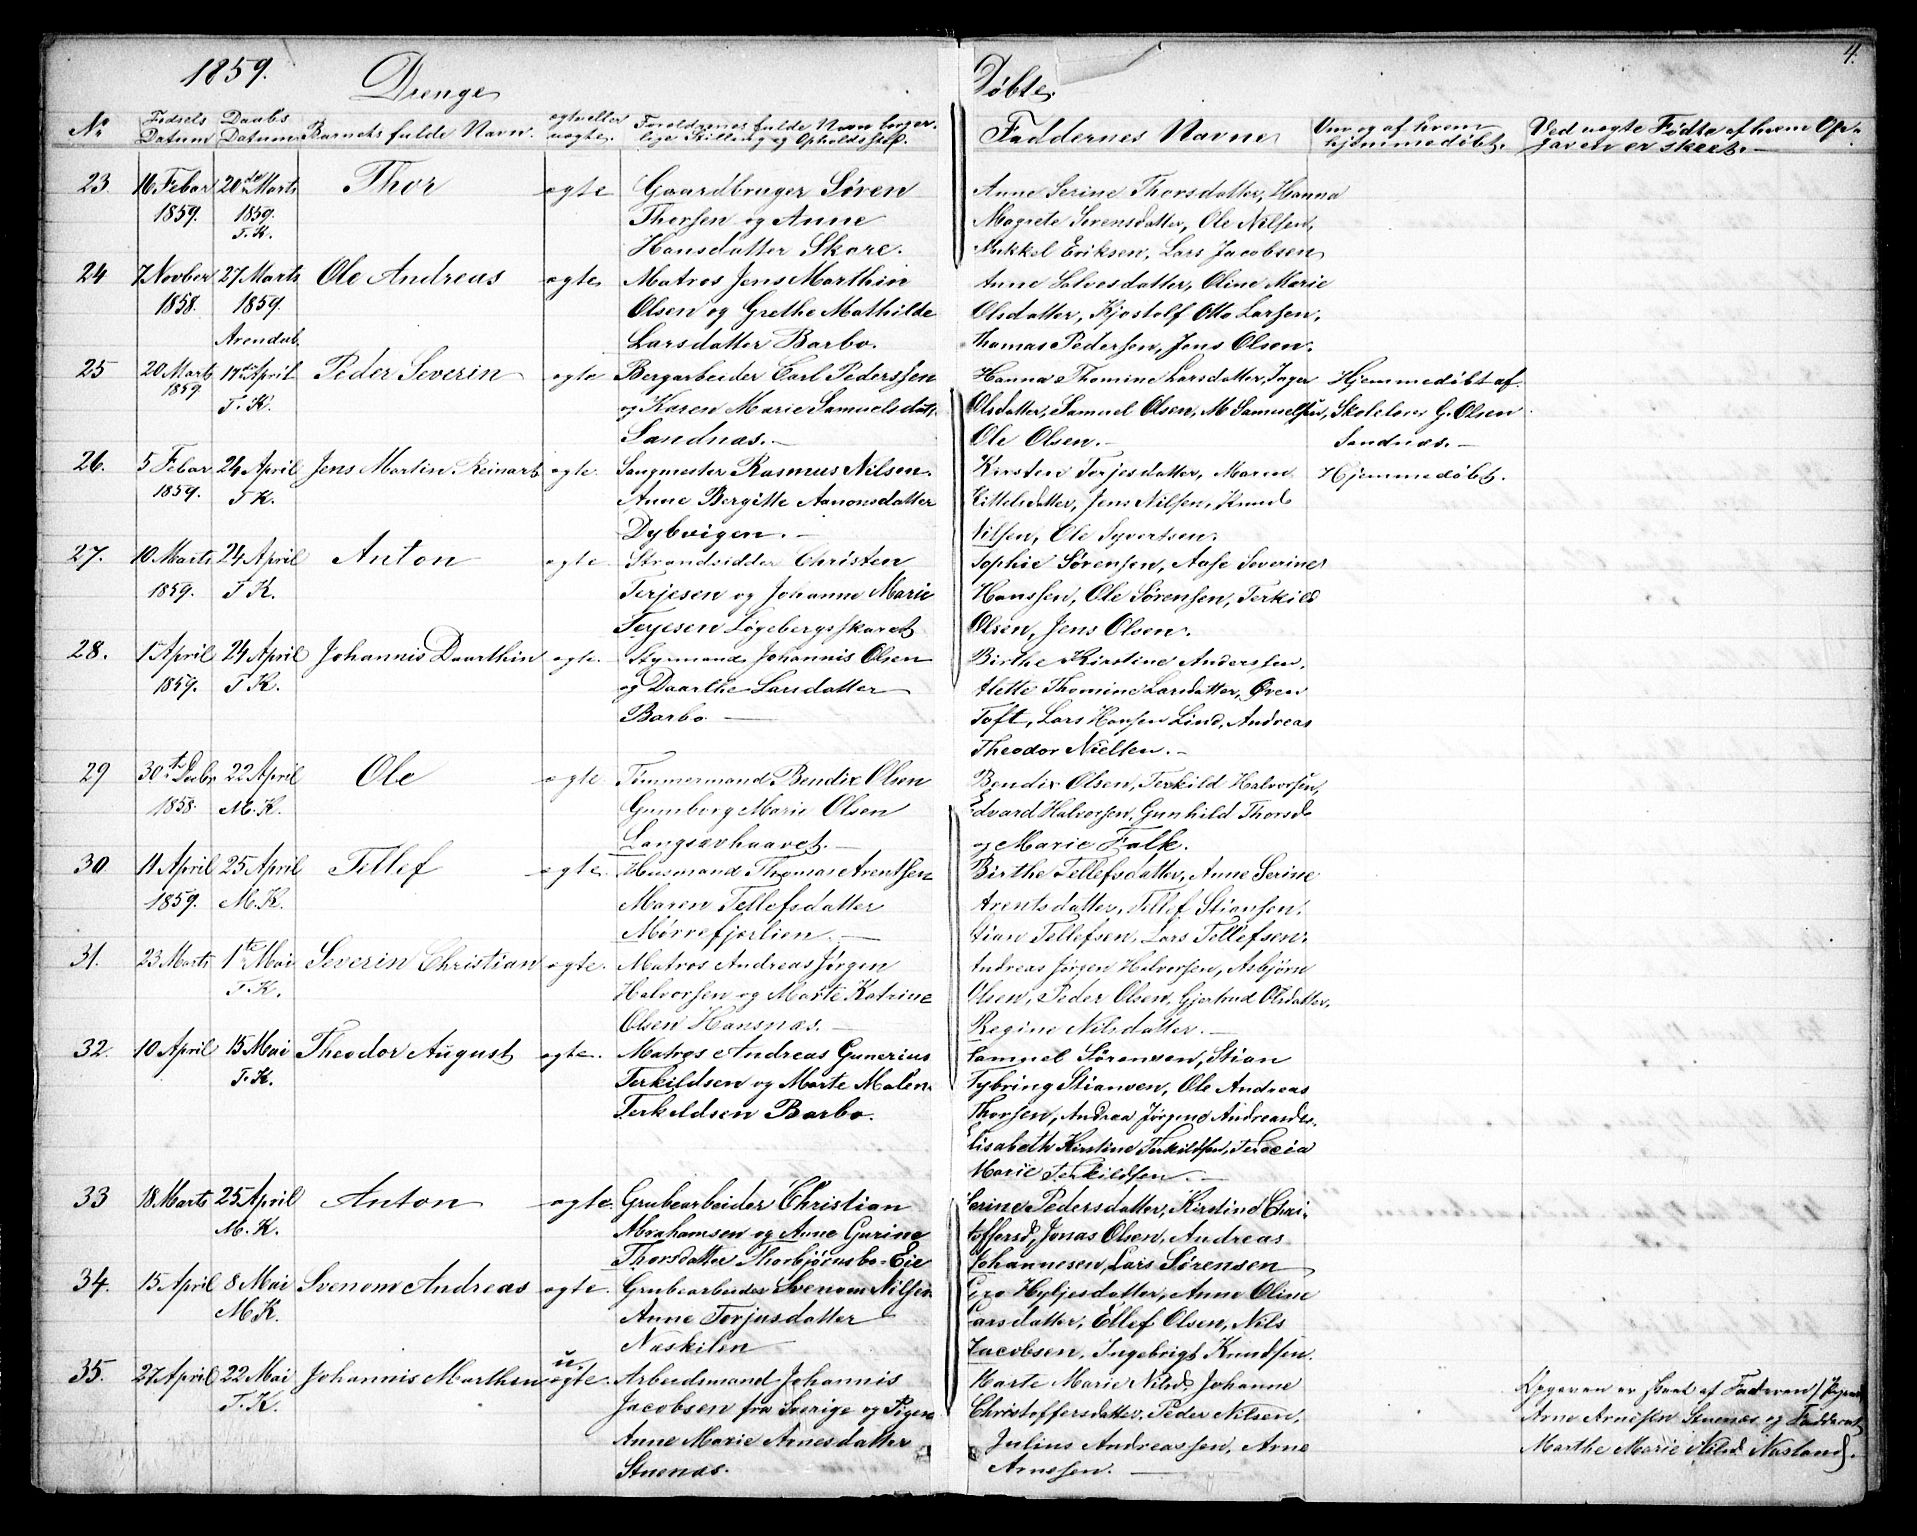 1859. Drenge Døbte. 4.
No Fødsels Datum Daabs Datum Barnets fulde Navn. ægte eller uægte. Forældrenes fulde Navn borgerlige Stilling og Opholdssted. Faddernes Navne Om og af hvem hjemmedøbt. Ved uægte Fødte af hvem Opgaven er skeet.
23. 16. Febar 20de Marts Thor ægte Gaardbruger Søren Anne Serine Thorsdatter, Hanna
1859. 1859. Thorsen og Anne Magrete Sørensdatter, Ole Nilsen,
T. K. Hansdatter Skare. Mikkel Eriksen, Lars Jacobsen
24 7 Novber 27 Marts Ole Andreas ægte. Matros Jens Marthin Anne Salvesdatter, Oline Marie
1858. 1859. Olsen og Grethe Mathilde Olsdatter, Kjøstolf Otto Larsen,
Arendal. Larsdatter Barbo. Thomas Pedersen, Jens Olsen.
25 20 Marts 17de April Peder Severin ægte Bergarbeider Carl Pederssen Hanna Thomine Larsdatter, Inger Hjemmedøbt af
1859 T. K. og Karen Marie Samuelsdatt. Olsdatter, Samuel Olsen, M Samuelsen, Skolelærer G. Olsen
Sandnæs. Ole Olsen. Sandnæs.
26. 5 Febar 24 April Jens Martin Reinart ægte. Sangmester Rasmus Nilsen. Kirsten Torjesdatter, Maren Hjemmedøbt.
1859. T. K. Anne Bergitte Aanonsdatter Kittelsdatter, Jens Nilsen, Knud
Dybvigen. Nilsen, Ole Syvertsen.
27. 10 Marts 24 April Anton ægte. Strandsidder Christen Sophie Sørensen, Aase Severine
1859. T. K. Terjesen og Johanne Marie Hanssen, Ole Sørensen, Terkild
Terjesen Løgebergsskaret Olsen, Jens Olsen.
28. 1 April 24 April Johannis Daarthin ægte. Styrmand Johannis Olsen Birthe Kirstine Anderssen,
1859. T. K. og Daarthe Larsdatter Alette Thomine Larsdatter, Øren
Barbo. Toft, Lars Hansen Lind, Andreas
Theodor Nielsen.
29 30te Decbr 22 April Ole ægte. Tømmermand Bendix Olsen Bendix Olsen, Terkild Halvorsen,
1858. M. K. Gunborg Marie Olsen Edvard Halvorsen, Gunhild Thorsd
Langsævhaavet. og Marie Falk.
30 11 April 25 April Tellef ægte. Husmand Thomas Arentsen Birthe Tellefsdatter, Anne Serine
1859. M. K. Maren Tellefsdatter Arentsdatter, Tellef Stiansen,
Mørrefjærlien. Stian Tellefsen, Lars Tellefsen.
31. 23 Marts 1te Mai Severin Christian ægte. Matros Andreas Jørgen Andreas Jørgen Halvorsen, Asbjørn
T. K. Halvorsen og Marte Katrine Olsen, Peder Olsen, Gjertrud Olsdatter,
Olsen Hansnæs. Regine Nilsdatter.
32. 10 April 15 Mai Theodor August ægte. Matros Andreas Gunerius Samuel Sørensen, Stian
T. K. Terkildsen og Marte Malene Tybring Stiansen, Ole Andreas
Terkeldsen Barbo. Thorsen, Andrea Jørgine Andreasds.
Elisabeth Kirstine Terkildsen,
Marie Terkildsen.
33 18 Marts 25 April Anton ægte. Grubearbeider Christian Serine Pedersdatter, Kirstine Chri-
M. K. Abrahamsen og Anne Gurine stoffersd, Jonas Olsen, Andreas
Thorsdatter Thorbjørnsbo-Eie Johannesen, Lars Sørensen
34. 15 April 8 Mai Svenom Andreas ægte. Grubearbeider Svenom Nilsen Gro Hyljesdatter, Anne Oline
M K. Anne Torjusdatter Larsdatter, Ellef Olsen, Nils
Næskilen Jacobsen, Ingebrigt Knudsen.
35. 27 April 22 Mai Johannis Marthin u. ægte. Arbeidsmand Johannis Marte Marie Nilsd, Johanne Opgaven er skeet af Faderen
T. K. Jacobsen fra Sverige og Pigen Christoffersdatter, Peder Nilsen, Arne Arnesen Stuenæs og Fadderen
Anne Marie Arnesdatter Julius Andreassen, Arne Marthe Marie Nilsd Næsland.
Stuenæs. Arnesen.